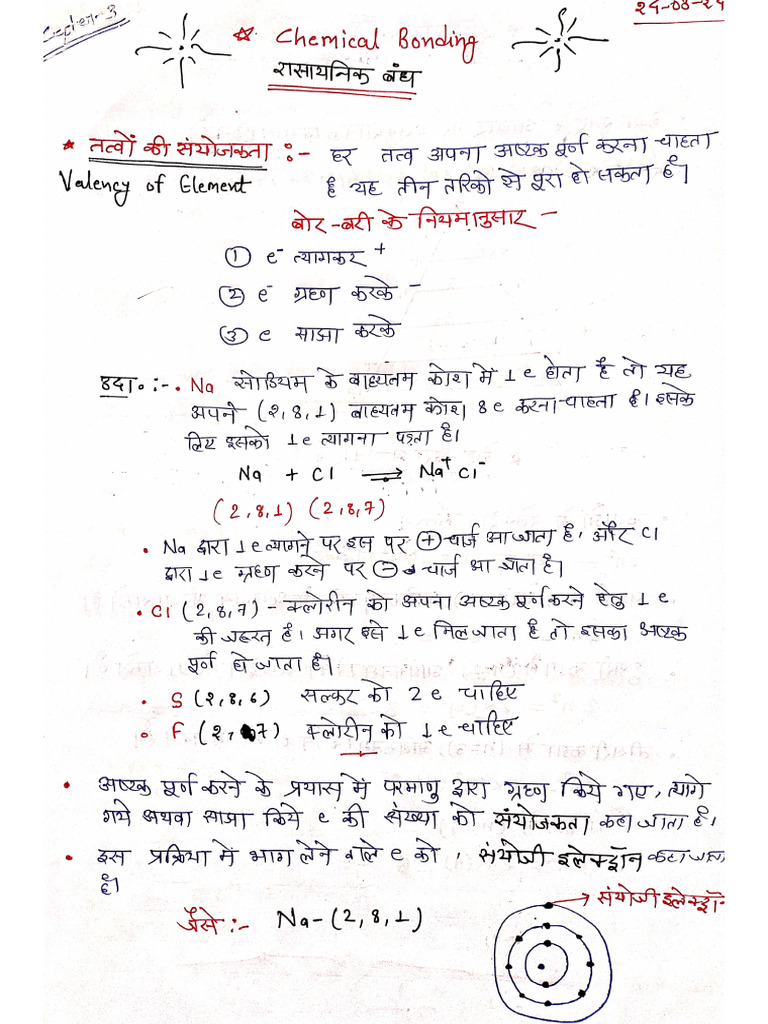 Chapter-3
24-08-24
* Chemical Bonding
रासायनिक बंध
* तत्वों की संयोजकता :- हर तत्व अपना अष्टक पूर्ण करना चाहता
Valency of Element है यह तीन तरिको से पूरा हो सकता है।
बोर-बरी के नियमानुसार -
① e⁻ त्यागकर +
② e⁻ ग्रहण करके -
③ e साझा करके
उदा० :- • Na सोडियम के बाह्यतम कोश में 1e होता है तो यह
अपने (2,8,1) बाह्यतम कोश 8e करना चाहता है। इसके
लिए इसको 1e त्यागना पड़ता है।
Na + Cl → Na⁺ Cl⁻
(2,8,1) (2,8,7)
• Na द्वारा 1e त्यागने पर इस पर ⊕ चार्ज आ जाता है, और Cl
द्वारा 1e ग्रहण करने पर ⊖ चार्ज आ जाता है।
• Cl (2,8,7) - क्लोरीन को अपना अष्टक पूर्ण करने हेतु 1e
की जरूरत है। अगर इसे 1e मिल जाता है तो इसका अष्टक
पूर्ण हो जाता है।
• S (2,8,6) सल्फर को 2e चाहिए
• F (2,7) क्लोरीन को 1e चाहिए
• अष्टक पूर्ण करने के प्रयास में परमाणु द्वारा ग्रहण किये गए, त्यागे
गये अथवा साझा किये e की संख्या को संयोजकता कहा जाता है।
• इस प्रक्रिया में भाग लेने वाले e को, संयोजी इलेक्ट्रॉन कहा जाता
है।
→ संयोजी इलेक्ट्रॉन
जैसे :- Na-(2,8,1)